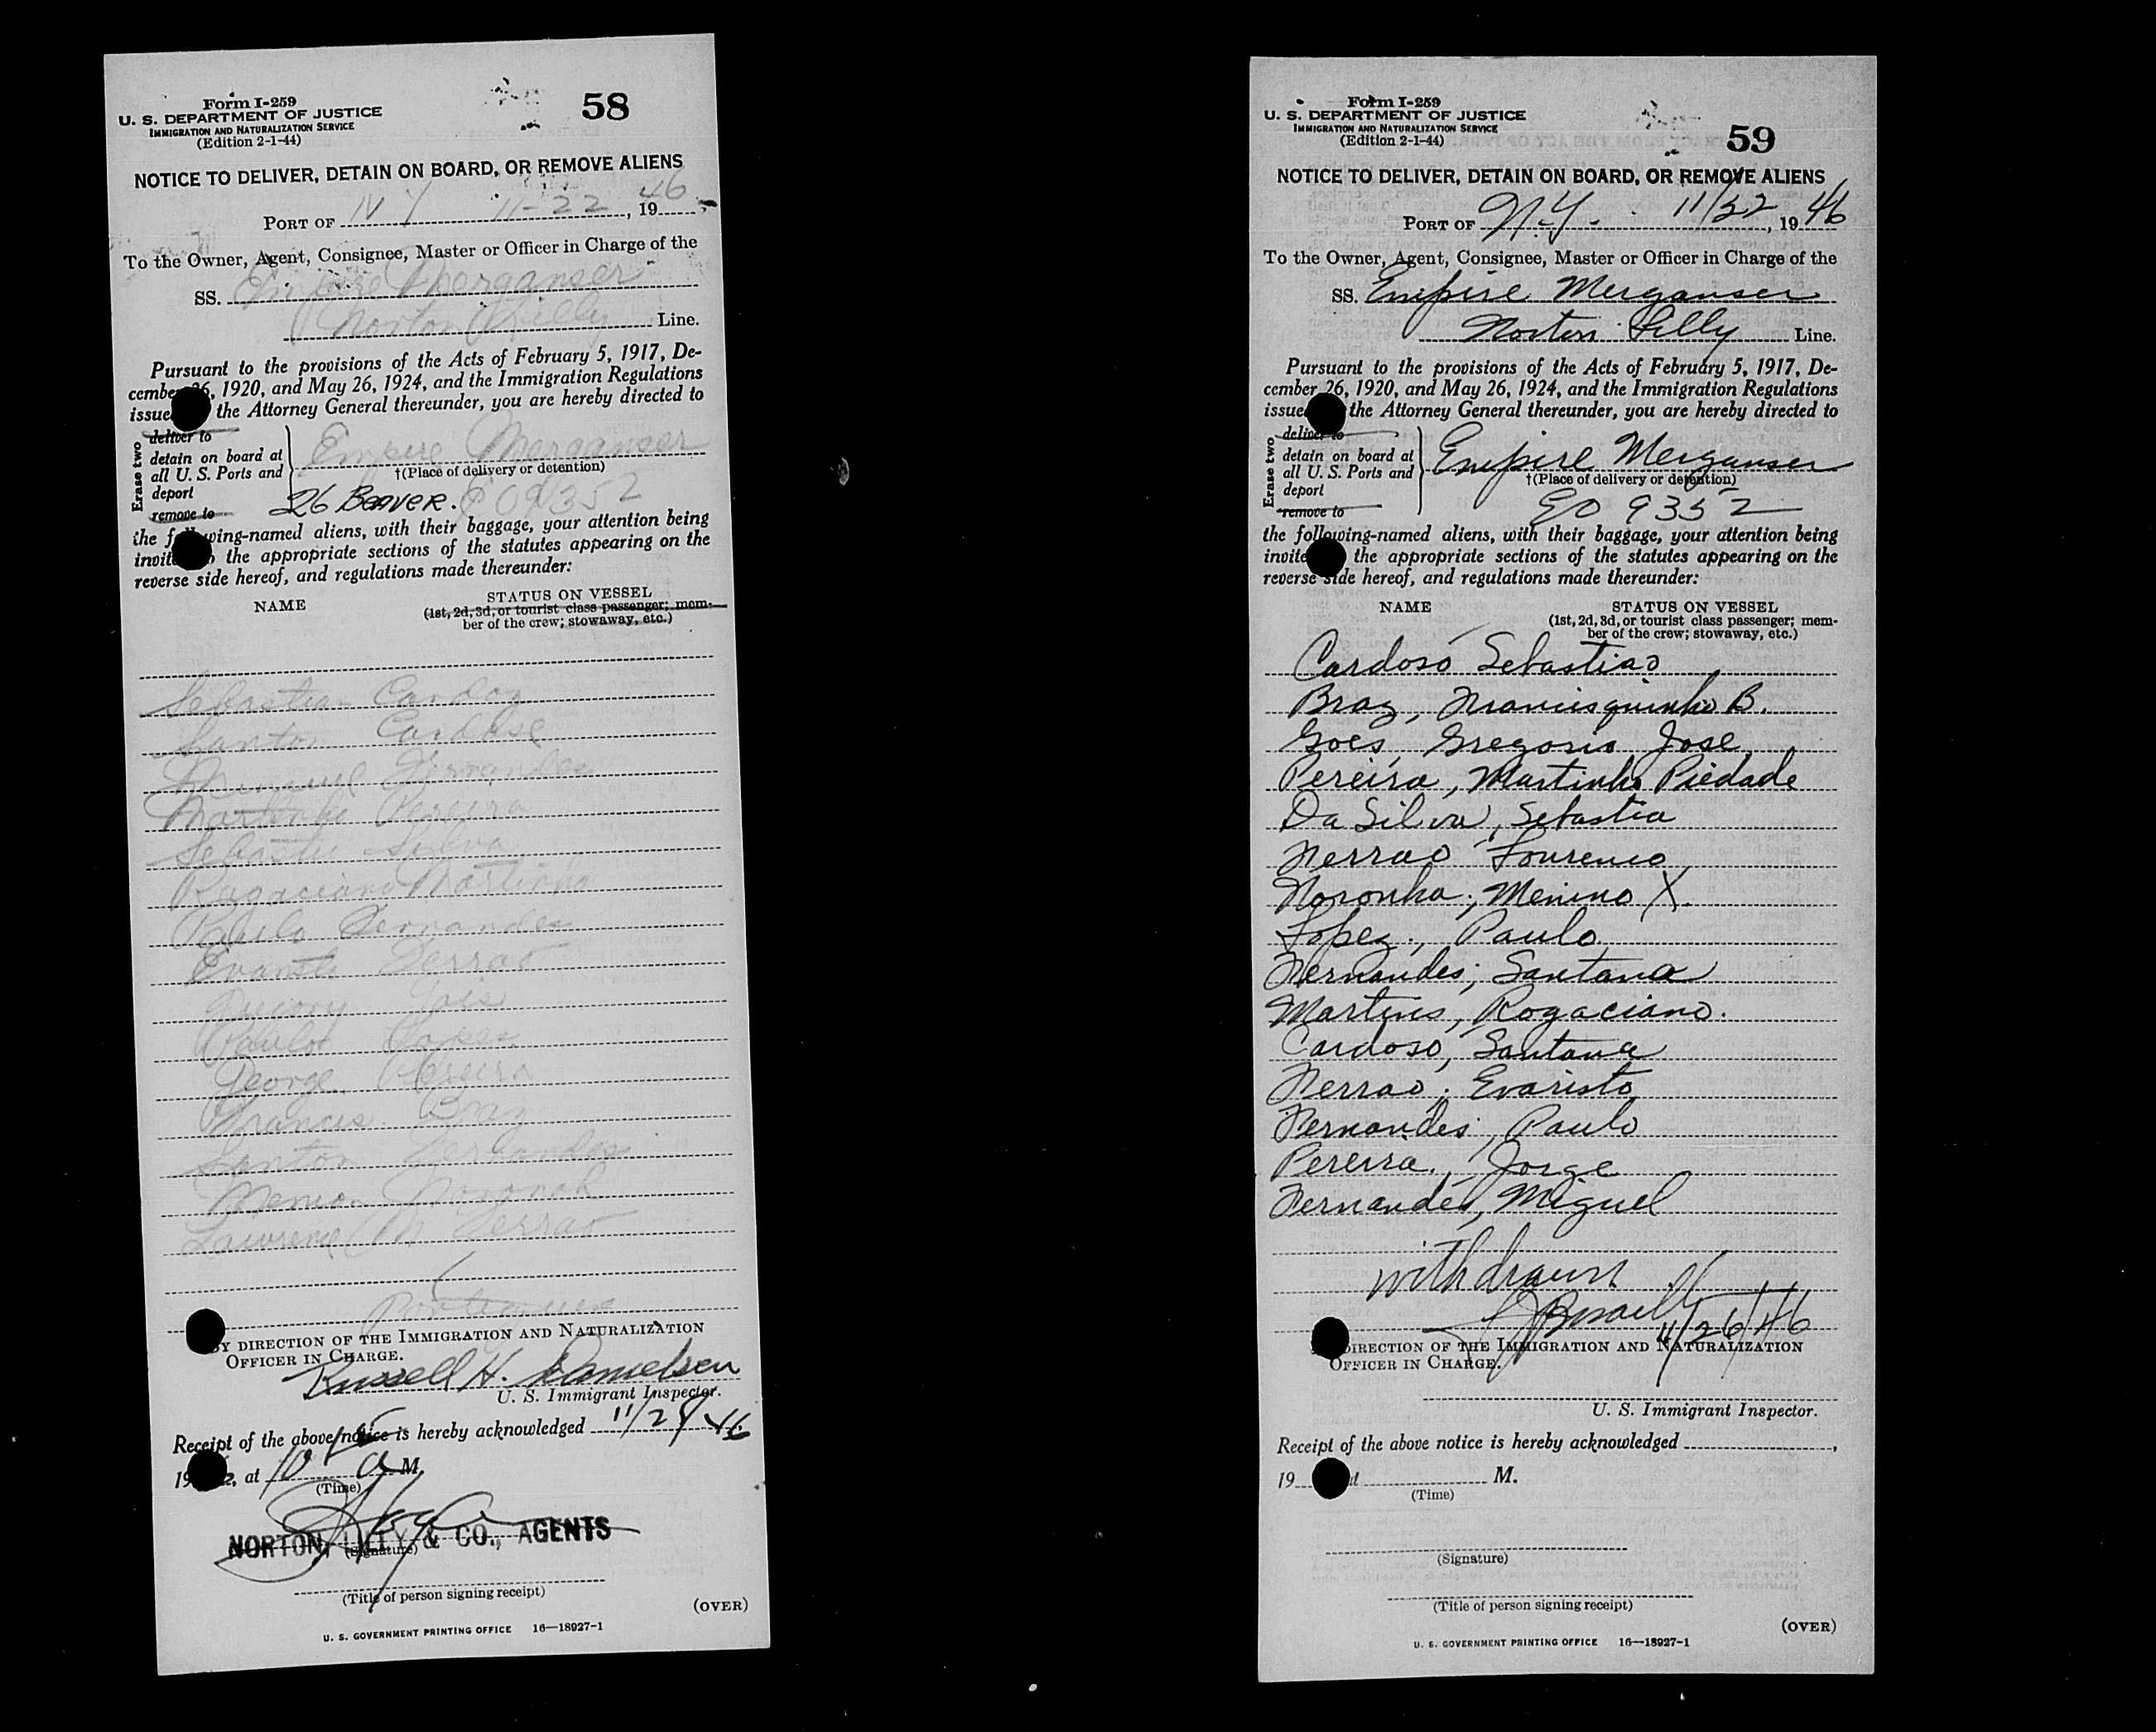 Form I-259
U. S. DEPARTMENT OF JUSTICE
IMMIGRATION AND NATURALIZATION SERVICE
(Edition 2-1-44)
58
NOTICE TO DELIVER, DETAIN ON BOARD, OR REMOVE ALIENS
PORT OF N Y 11-22, 1946
To the Owner, Agent, Consignee, Master or Officer in Charge of the
SS. Empire Merganser
Norton Lilly Line.
Pursuant to the provisions of the Acts of February 5, 1917, De-
cember 26, 1920, and May 26, 1924, and the Immigration Regulations
issue the Attorney General thereunder, you are hereby directed to
Erase two
deliver to
detain on board at
all U. S. Ports and
deport
remove to
Empire Merganser
†(Place of delivery or detention)
26 BEAVER. EO 9352
the following-named aliens, with their baggage, your attention being
invite the appropriate sections of the statutes appearing on the
reverse side hereof, and regulations made thereunder:
NAME
STATUS ON VESSEL
(1st, 2d, 3d, or tourist class passenger; mem-
ber of the crew; stowaway, etc.)
Sebastian Cardoz
Santon Cardose
Fernandes
Martinho Pereira
Silva
Rogaciano Martinho
Paulo Fernandes
Ferrao
Gregory Gois
Lopes
George Pereira
Francis Braz
Santon Fernandes
Noronah
Lawrence M Ferrao
BY DIRECTION OF THE IMMIGRATION AND NATURALIZATION
OFFICER IN CHARGE.
Russell H. Danielsen
U. S. Immigrant Inspector.
Receipt of the above notice is hereby acknowledged 11/29/46,
19, at 10 a M.
(Time)
NORTON, LILLY & CO., AGENTS
(Signature)
(Title of person signing receipt)
(OVER)
U. S. GOVERNMENT PRINTING OFFICE 16—18927-1
Form I-259
U. S. DEPARTMENT OF JUSTICE
IMMIGRATION AND NATURALIZATION SERVICE
(Edition 2-1-44)
59
NOTICE TO DELIVER, DETAIN ON BOARD, OR REMOVE ALIENS
PORT OF N.Y. 11/22, 1946
To the Owner, Agent, Consignee, Master or Officer in Charge of the
SS. Empire Merganser
Norton Lilly Line.
Pursuant to the provisions of the Acts of February 5, 1917, De-
cember 26, 1920, and May 26, 1924, and the Immigration Regulations
issue the Attorney General thereunder, you are hereby directed to
Erase two
deliver to
detain on board at
all U. S. Ports and
deport
remove to
Empire Merganser
†(Place of delivery or detention)
EO 9352
the following-named aliens, with their baggage, your attention being
invite the appropriate sections of the statutes appearing on the
reverse side hereof, and regulations made thereunder:
NAME
STATUS ON VESSEL
(1st, 2d, 3d, or tourist class passenger; mem-
ber of the crew; stowaway, etc.)
Cardoso Sebastiao
Braz, Francisquinho B.
Goes, Gregorio Jose
Pereira, Martinho Piedade
Da Silva, Sebastia
Ferrao Lourenco
Noronha, Menino X.
Lopez, Paulo
Fernandes, Santana
Martins, Rogaciano.
Cardoso, Santana
Ferrao, Evaristo
Fernandes, Paulo
Pereira, Jorge
Fernandes, Miguel
withdrawn
11/26/46
DIRECTION OF THE IMMIGRATION AND NATURALIZATION
OFFICER IN CHARGE.
U. S. Immigrant Inspector.
Receipt of the above notice is hereby acknowledged ,
19 M.
(Time)
(Signature)
(Title of person signing receipt)
(OVER)
U. S. GOVERNMENT PRINTING OFFICE 16—18927-1